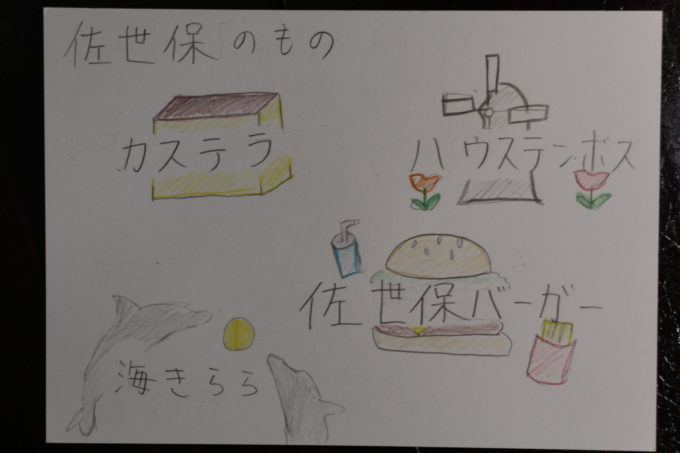 佐世保のもの
カステラ
ハウステンボス
佐世保バーガー
海きらら